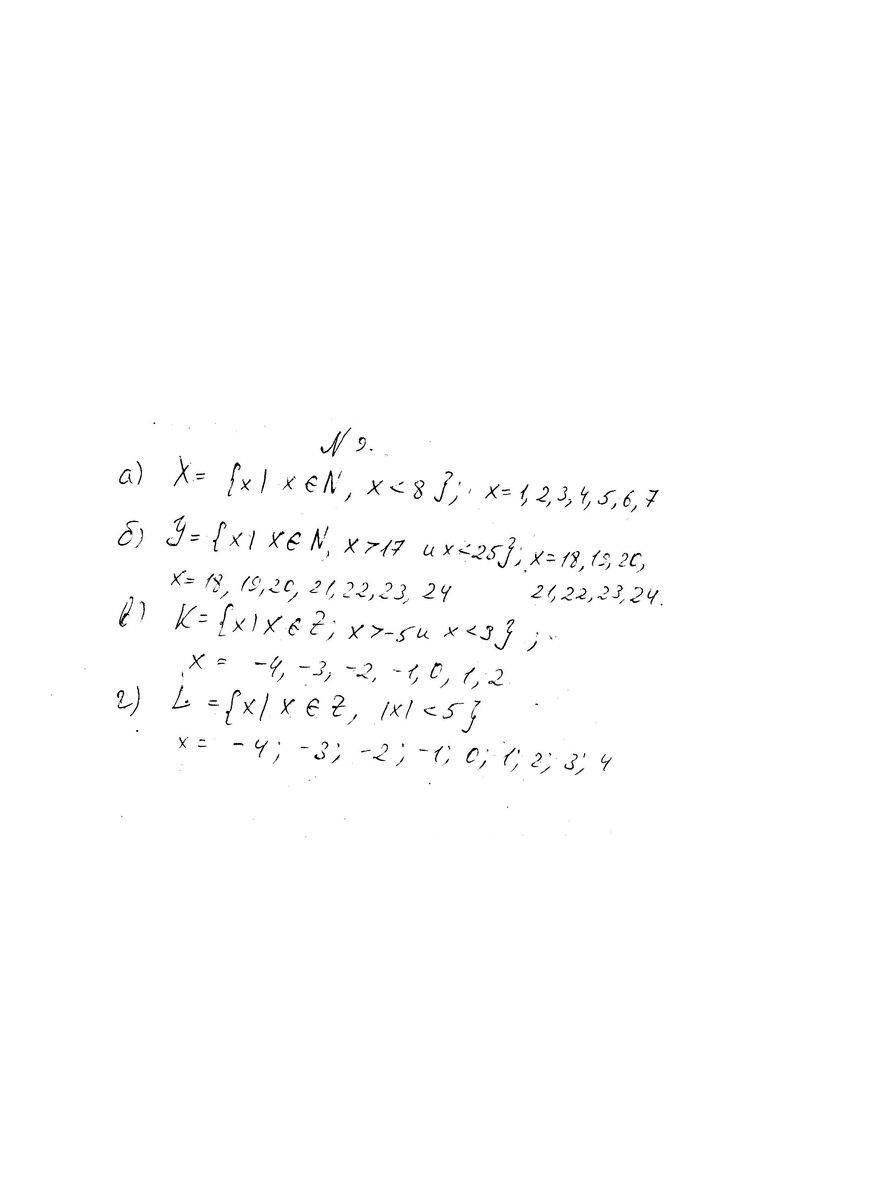 N 9.
а) X = {x| x ∈ N, x < 8}; x = 1, 2, 3, 4, 5, 6, 7
б) Y = {x| x ∈ N, x > 17 и x < 25}; x = 18, 19, 20,
x = 18, 19, 20, 21, 22, 23, 24 21, 22, 23, 24.
в) K = {x| x ∈ Z; x > -5 и x < 3};
x = -4, -3, -2, -1, 0, 1, 2
г) L = {x| x ∈ Z, |x| < 5}
x = -4; -3; -2; -1; 0; 1; 2; 3; 4